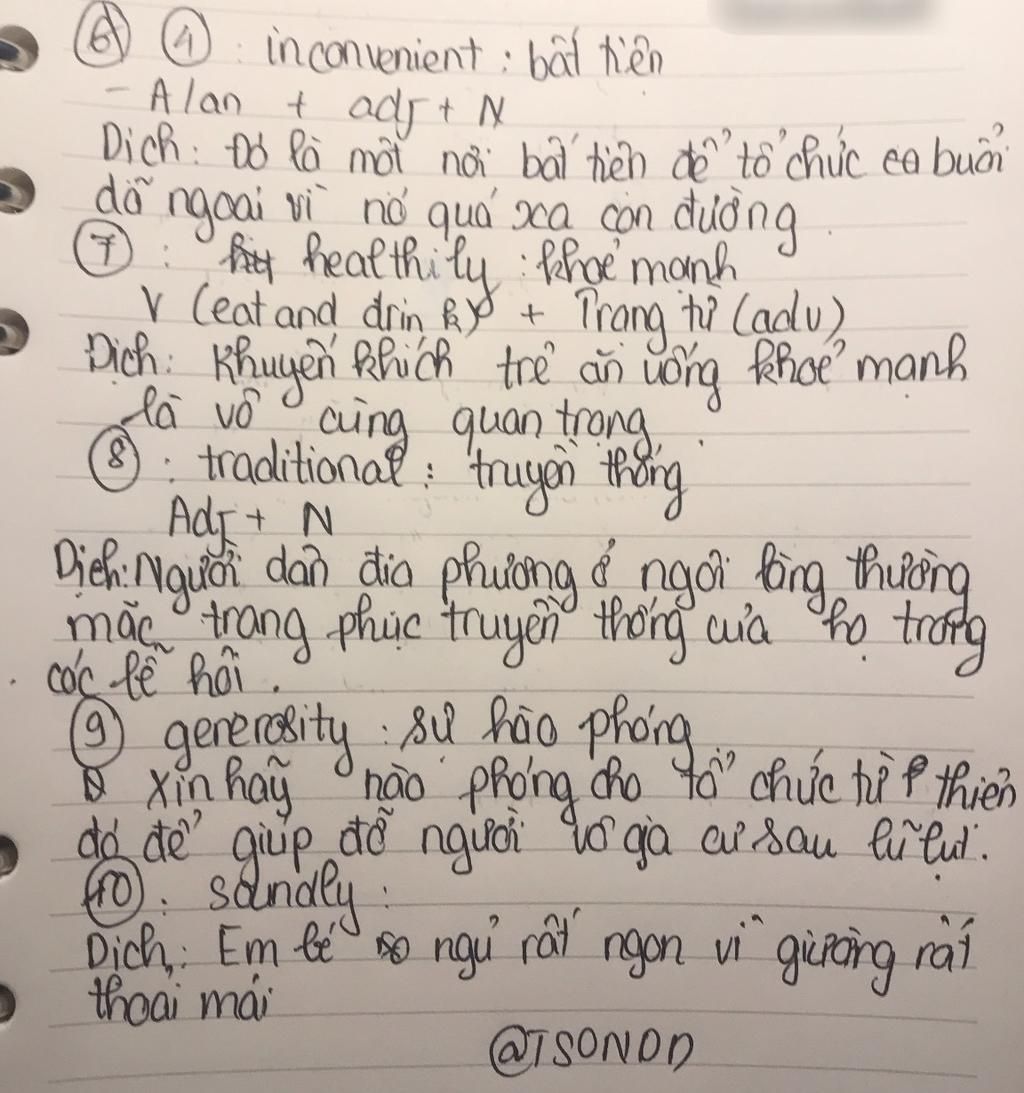 6 4 : inconvenient : bất tiện
- A/an + adj + N
Dịch: Đó là một nơi bất tiện để tổ chức buổi
dã ngoại vì nó quá xa con đường
7 : healthily : khoẻ mạnh
V (eat and drink) + Trạng từ (adv)
Dịch: Khuyến khích trẻ ăn uống khoẻ mạnh
là vô cùng quan trọng.
8 : traditional : truyền thống
Adj + N
Dịch: Người dân địa phương ở ngôi làng thường
mặc trang phục truyền thống của họ trong
các lễ hội.
9 generosity : sự hào phóng
Xin hãy hào phóng cho tổ chức từ thiện
đó để giúp đỡ người vô gia cư sau lũ lụt.
10 : soundly :
Dịch: Em bé ngủ rất ngon vì giường rất
thoải mái
@TSONDD